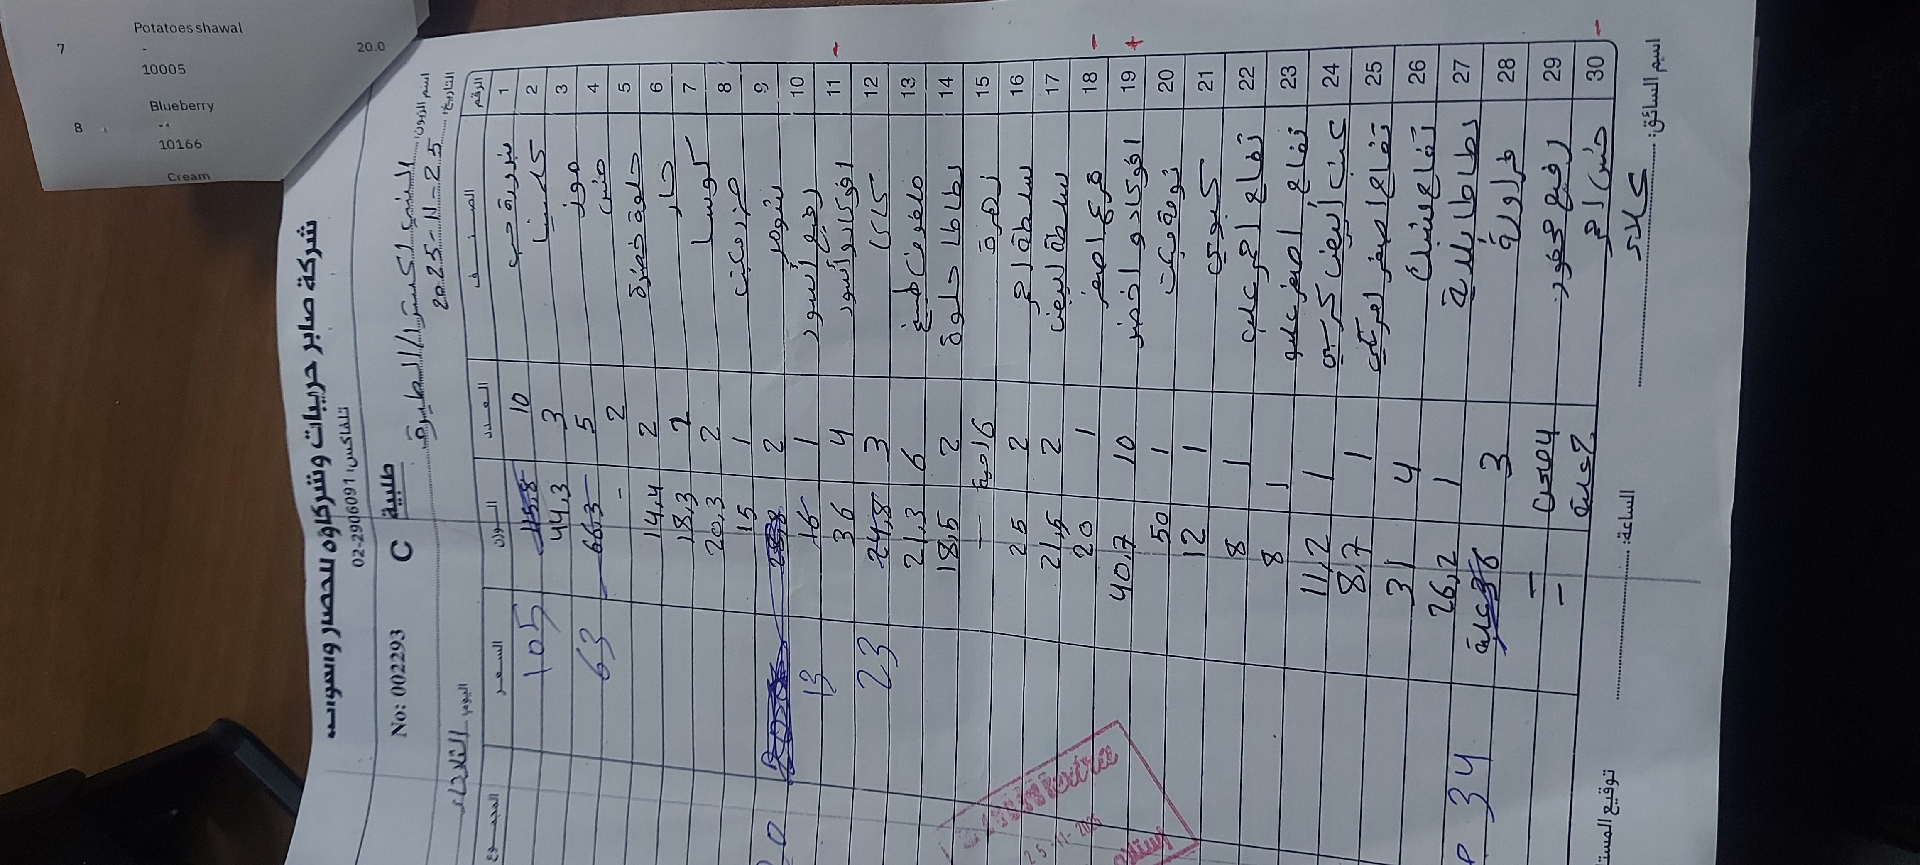 7 Potatoes shawal 20.0
-
10005
8 Blueberry
--
10166
Cream
شركة صابر حريبات وشركاؤه للخضار والفواكه
تلفاكس: 02-2906091
No: 002293 C طلبية
اسم الزبون:
اليوم: الثلاثاء التاريخ: 2025-11-25
الرقم الصنف العدد الوزن السعر المجموع
1 بندورة حب 10 115,8 105
2 كلمنتينا 3 44,3
3 موز 5 66,3 63
4 خس 2 -
5 حلوة خضرة 2 14,4
6 حار 2 18,3
7 كوسا 2 20,3
8 1 15
9 شومر 2
10 رفيع أسود 1 15 13
11 افوكادو أسود 4 36
12 كاكا 3 24,8 23
13 ملفوف 6 21,3
14 بطاطا حلوة 2 18,5
15 زهرة 16 حبة —
16 بسلطة احمر 2 25
17 بسلطة ابيض 2 21,5
18 قرع اصفر 1 20
19 افوكادو اخضر 10 40,7
20 1 50
21 كيوي 1 12
22 تفاح احمر علب 1 8
23 تفاح اصفر علب 1 8
24 عنب أبيض 1 11,2
25 تفاح اصفر 1 8,7
26 تفاح 4 31
27 بطاطا بلدية 1 26,2
28 فراولة 3 علبة 34
29 رفيع –
30 2 علبة –
اسم السائق: علاء
الساعة:
توقيع المست
25-11-2025